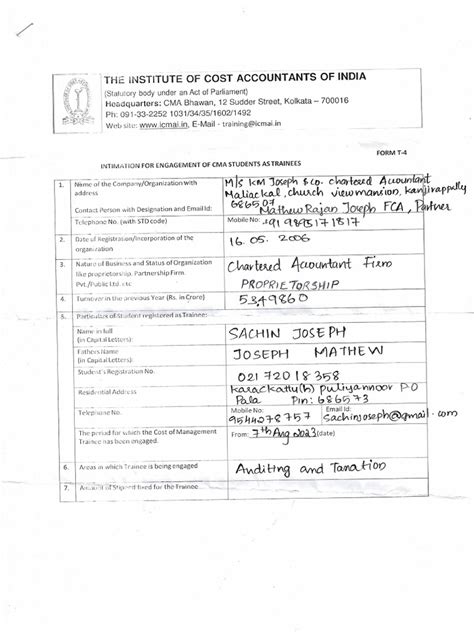 THE INSTITUTE OF COST ACCOUNTANTS OF INDIA
(Statutory body under an Act of Parliament)
Headquarters: CMA Bhawan, 12 Sudder Street, Kolkata – 700016
Ph: 091-33-2252 1031/34/35/1602/1492
Web site: www.icmai.in, E-Mail - training@icmai.in
FORM T-4
INTIMATION FOR ENGAGEMENT OF CMA STUDENTS AS TRAINEES
1. Name of the Company/Organization with address M/s KM Joseph & co. chartered Accountant
Maliackal, church viewmansion, kanjirappally
686507
Contact Person with Designation and Email Id: Mathew Rajan Joseph FCA, Partner
Telephone No. (with STD code) Mobile No: +91 9895171817
2. Date of Registration/Incorporation of the organization 16.05.2006
3. Nature of Business and Status of Organization Chartered Accountant Firm
like proprietorship, Partnership Firm,
Pvt./Public Ltd. etc PROPRIETORSHIP
4. Turnover in the previous Year (Rs. in Crore) 5349860
5. Particulars of Student registered as Trainee:
Name in full
(in Capital Letters): SACHIN JOSEPH
Fathers Name
(in Capital Letters): JOSEPH MATHEW
Student's Registration No. 02172018358
Residential Address Karackattu(h) puliyannoor PO
Pala Pin: 686573
Telephone No. Mobile No: Email Id:
9544278757 sachinjoseph@gmail.com
The period for which the Cost of Management
Trainee has been engaged. From: 7th Aug 2023 (date)
6. Areas in which Trainee is being engaged Auditing and Taxation
7. Amount of Stipend fixed for the Trainee